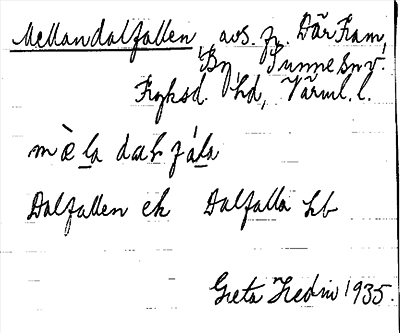 Mellandalfallen, avs. fr. Där Fram,
By Sunne snv.
Fryksd. hd, Värml. l.
mὲla dal fála
Dalfallen ek Dalfalla hb
Greta Hedin 1935.